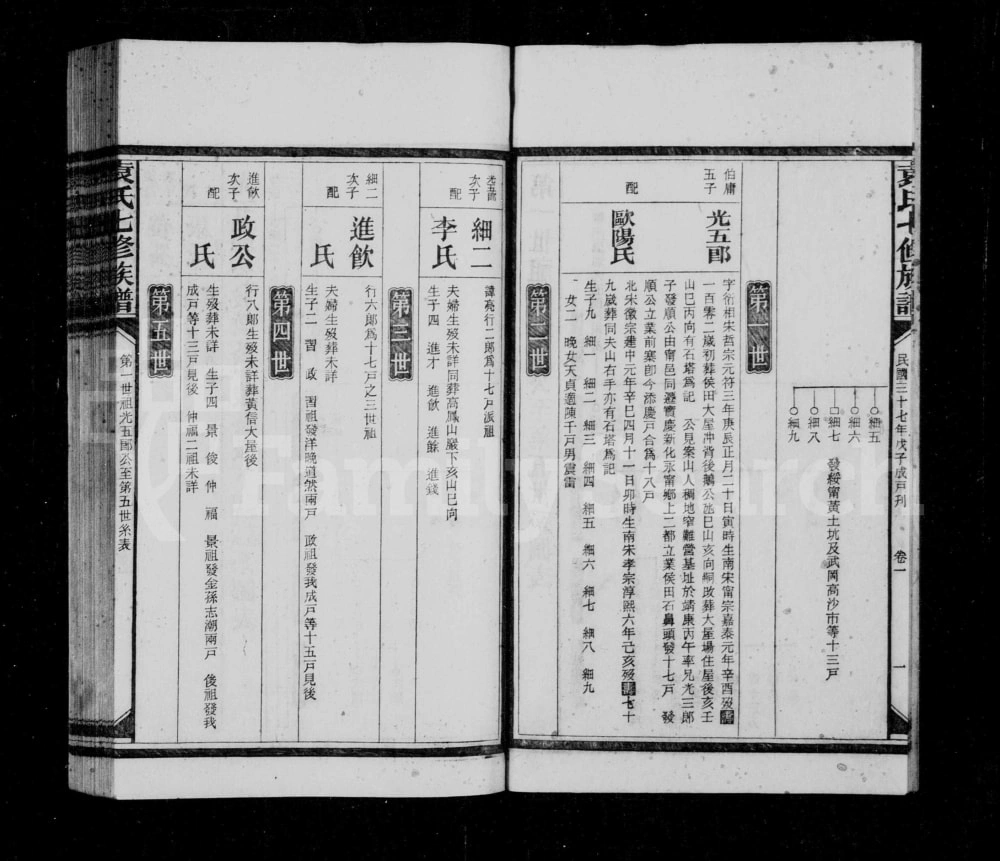 袁氏七修族譜
民國三十七年戊子成戶刊
卷一
一
細五
細六
細七 發綏甯黃土坑及武岡高沙市等十三戶
細八
細九
第一世
伯庸
五子
光五郎
字衍相宋哲宗元符三年庚辰正月二十日寅時生南宋甯宗嘉泰元年辛酉歿壽
一百零二歲初葬侯田大屋冲背後鵝公 巳山亥向嗣改葬大屋場住屋後亥壬
山巳丙向有石塔為記 公見案山人稠地窄難營基址於靖康丙午率兄光三郎
子發順公由甯邑同遷寶慶新化永甯鄉上二都立業侯田石鼻頭發十七戶 發
順公立業前寨卽今添慶戶合為十八戶
配
歐陽氏
北宋徽宗建中元年辛巳四月十一日卯時生南宋孝宗淳熙六年己亥歿壽七十
九歲葬同夫山右手亦有石塔為記
生子九 細一 細二 細三 細四 細五 細六 細七 細八 細九
女二 晚女天貞適陳千戶男震雷
第二世
光五郎
次子
細二
諱亮行二郎為十七戶派祖
配
李氏
夫婦生歿未詳同葬高鳳山巖下亥山巳向
生子四 進才 進飲 進餘 進錢
第三世
細二
次子
進飲
行六郎為十七戶之三世祖
配
氏
夫婦生歿葬未詳
生子二 習 政 習祖發洋晚道然兩戶 政祖發我成戶等十五戶見後
第四世
進飲
次子
政公
行八郎生歿未詳葬黃信大屋後
配
氏
生歿葬未詳 生子四 景 俊 仲 福 景祖發金孫志潮兩戶 俊祖發我
成戶等十三戶見後 仲福二祖未詳
第五世
袁氏七修族譜
第一世祖光五郎公至第五世系表